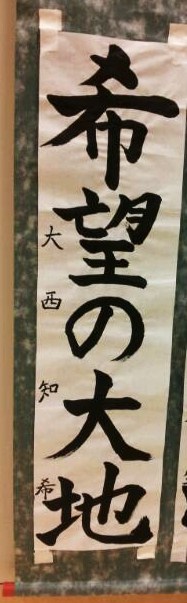 希望の大地
大西知希